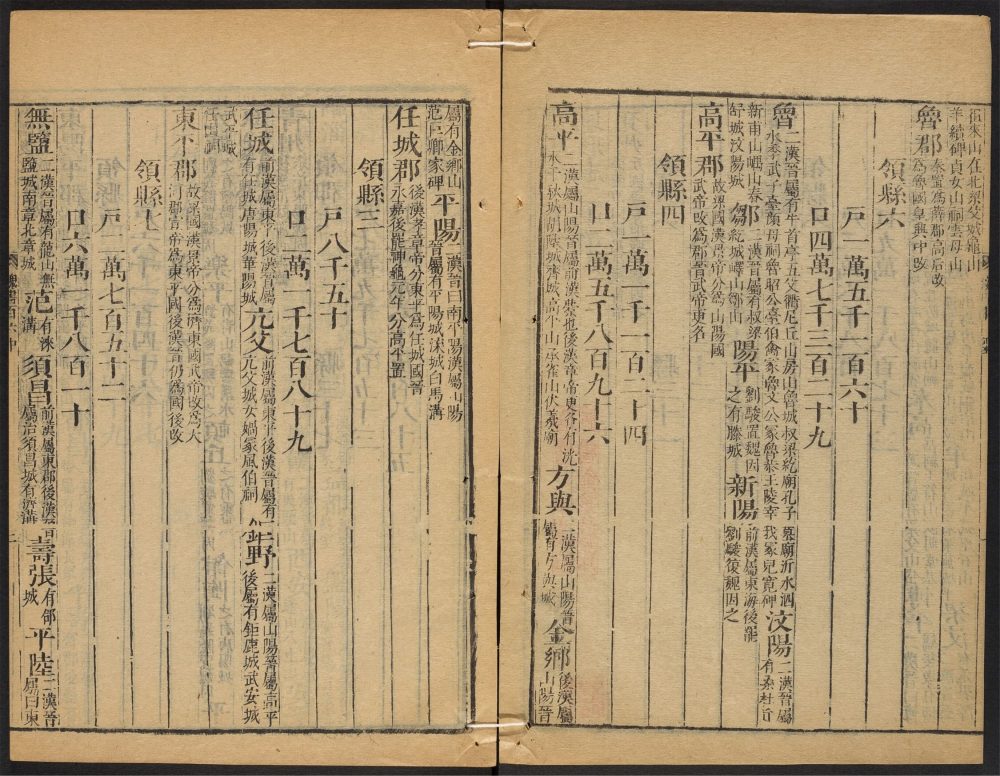 徂來山在北梁父城龜山
羊續碑貞女山祠雲母山
魯郡 秦置爲薛郡高后改
爲魯國皇興中改
領縣六
戸一萬五千一百六十
口四萬七千三百二十九
魯 二漢晉屬有牛首亭五父衢尼丘山房山魯城叔梁紇廟孔子墓廟沂水泗
水季武子臺顏母祠魯昭公臺伯禽冢魯文公冢魯恭王陵宰我冢兒寬碑
汶陽 二漢晉屬
有桑杜谷
新甫山嶇山春
舒城汶陽城
鄒 二漢晉屬有叔梁
紇城嶧山鄒山
陽平 劉駿置魏因
之有滕城
新陽 前漢屬東海後罷
劉駿復魏因之
高平郡 故梁國漢景帝分爲山陽國
武帝改爲郡晉武帝更名
領縣四
戸一萬一千一百二十四
口二萬五千八百九十六
高平 二漢屬山陽晉屬前漢槖也後漢章帝更名有洸
水千秋城胡陸城齊城高平山承雀山伏羲廟
方與 二漢屬山陽晉
屬有方與城
金鄉 後漢屬
山陽晉
屬有金鄉山
范巨卿冢碑
平陽 二漢晉曰南平陽漢屬山陽
晉屬有平陽城漆城白馬溝
任城郡 後漢孝章帝分東平爲任城國晉
永嘉後罷神龜元年分高平置
領縣三
戸八千五十
口二萬一千七百八十九
任城 前漢屬東平後漢晉屬
有任城唐陽城華陽城
亢父 前漢屬東平後漢晉屬有
亢父城女媧冢風伯祠
鉅野 二漢屬山陽晉屬高平
後屬有鉅鹿城武安城
武平城
東平郡 故梁國漢景帝分爲濟東國武帝改爲大
河郡宣帝爲東平國後漢晉仍爲國後改
領縣七
戸二萬七百五十二
口六萬一千八百一十
無鹽 二漢晉屬有龍山無
鹽城南章北章城
范 有
溝
須昌 前漢屬東郡後漢晉
屬治須昌城有濟溝
壽張 有郈
城
平陸 二漢晉
屬曰東
魏書百六中